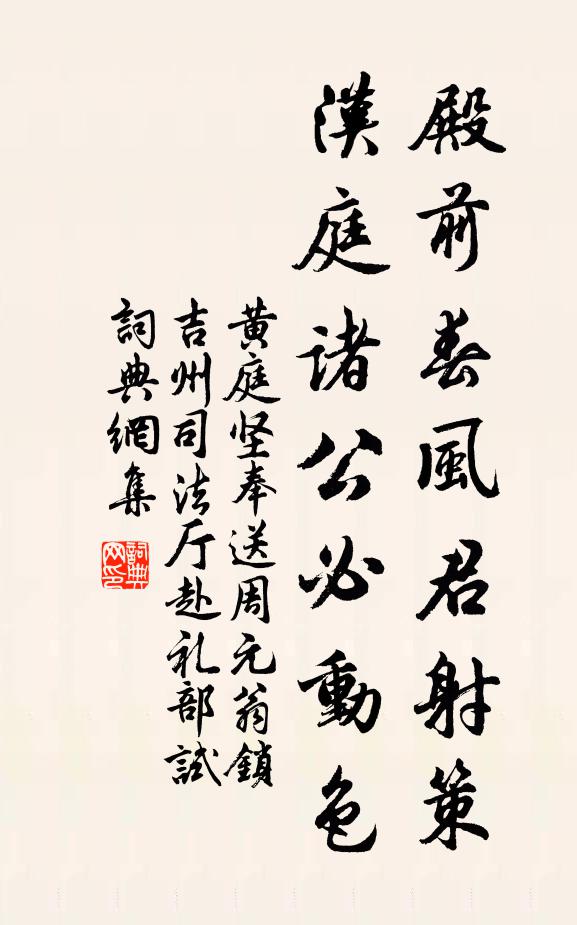 殿前春風君射策
漢庭諸公必動色
黄庭坚奉送周元翁鎖
吉州司法厅赴礼部試
詞典網集
詞典網印